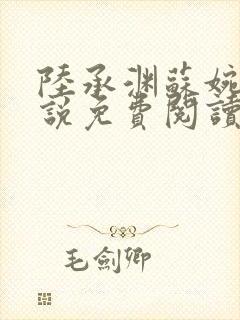 陸承淵蘇婉
說免費閱讀
毛劍卿